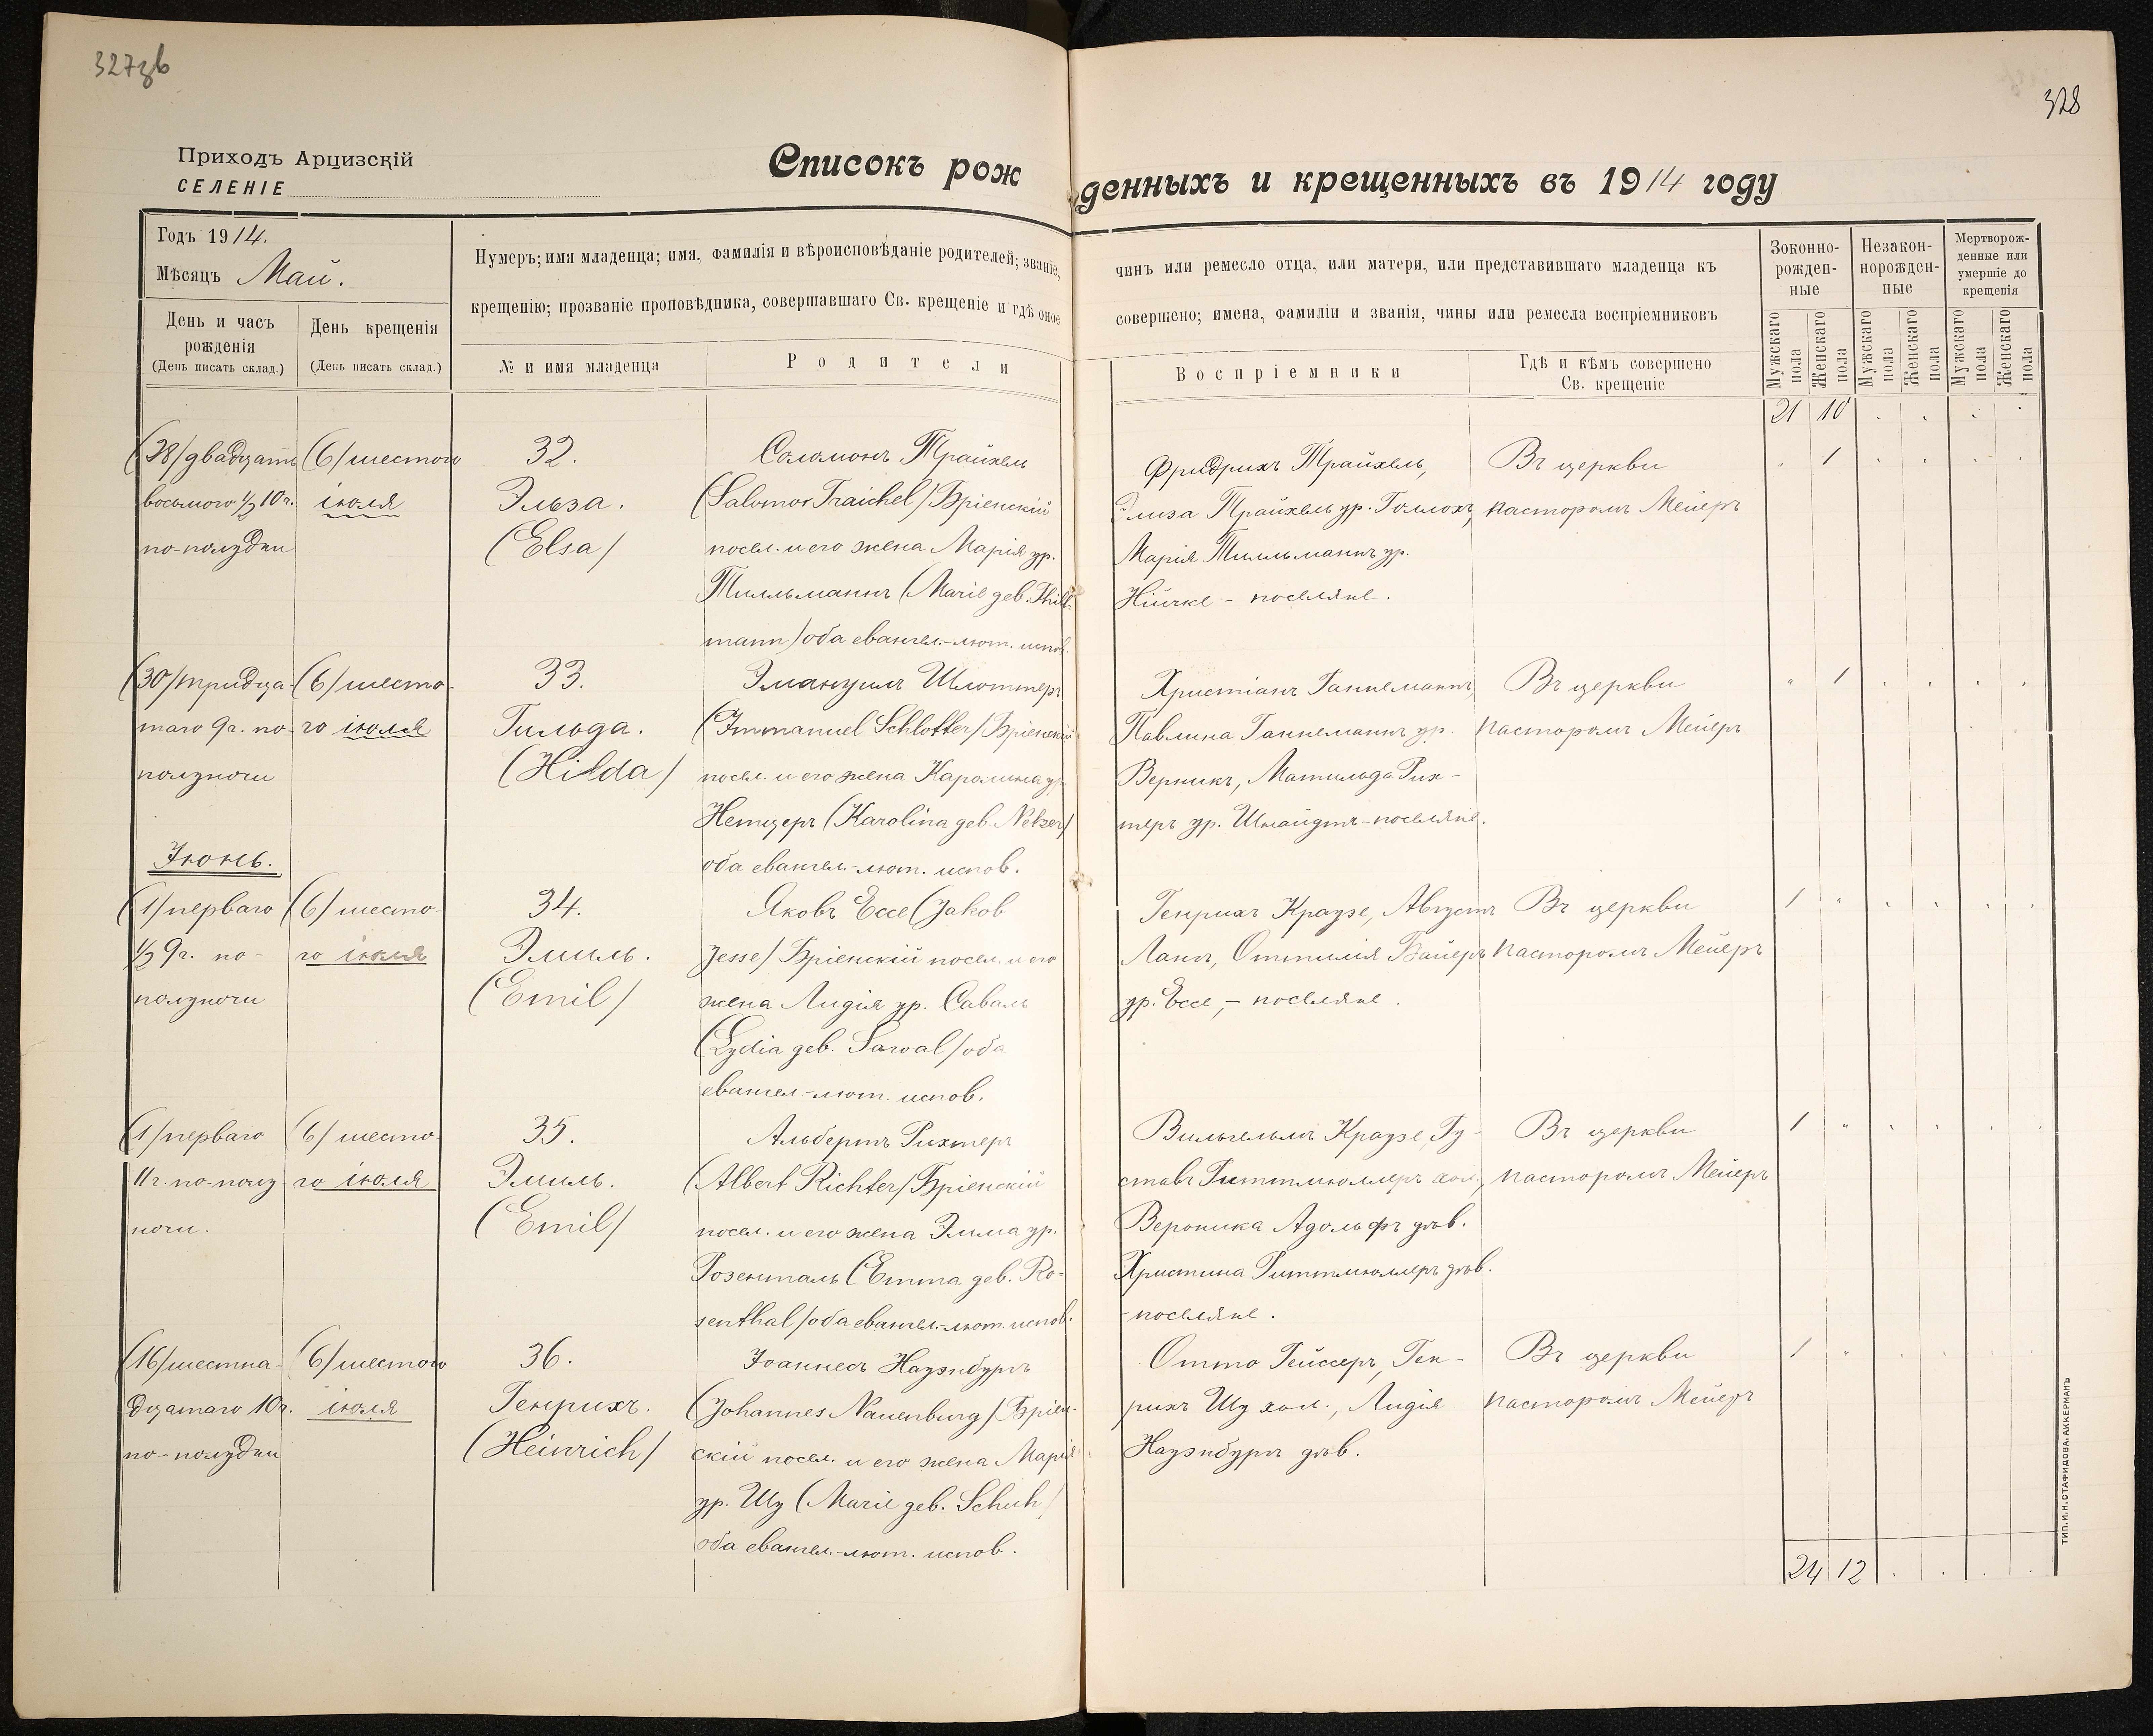 327зв
328
Приходъ Арцизскій
СЕЛЕНІЕ
Списокъ рожденныхъ и крещенныхъ въ 1914 году
Годъ 1914.
Мѣсяцъ Май.
День и часъ
рожденія
(День писать склад.)
День крещенія
(День писать склад.)
Нумеръ; имя младенца; имя, фамилія и вѣроисповѣданіе родителей; званіе,
крещенію; прозваніе проповѣдника, совершавшаго Св. крещеніе и гдѣ оное
№ и имя младенца
Родители
чинъ или ремесло отца, или матери, или представившаго младенца къ
совершено; имена, фамиліи и званія, чины или ремесла воспріемниковъ
Воспріемники
Гдѣ и кѣмъ совершено
Св. крещеніе
Зоконно-
рожден-
ные
Незакон-
норожден-
ные
Мертворож-
денные или
умершіе до
крещенія
Мужскаго пола
Женскаго пола
Мужскаго пола
Женскаго пола
Мужскаго пола
Женскаго пола
21 10 . . . .
(28/двадцать
восьмого ½ 10 ч.
по-полудни
(6/шестого
іюля
32.
Эльза.
(Elsa/
Соломонъ Трайхель
(Salomon Traichel/Бріенскій
посел. и его жена Марія ур.
Тилльманнъ (Marie geb. Thill-
mann/оба евангел.-лют. испов.
Фридрихъ Трайхель,
Элиза Трайхель ур. Голлохъ,
Марія Тилльманнъ ур.
Ничке - поселяне.
Въ церкви
пасторомъ Мейеръ
" 1 . . . .
(30/тридца-
таго 9 ч. по-
полуночи
(6/шесто-
го іюля
33.
Гильда.
(Hilda/
Эмануилъ Шлоттеръ
(Immanuel Schlotter/Бріенскій
посел. и его жена Каролина ур.
Нетцеръ (Karolina geb. Netzer/
оба евангел.-лют. испов.
Христіанъ Ганнеманнъ,
Павлина Ганнеманнъ ур.
Верникъ, Матильда Рих-
теръ ур. Шнайдтъ-поселяне.
Въ церкви
пасторомъ Мейеръ
" 1 . . . .
Іюнь.
(1/перваго
½ 9 ч. по-
полуночи
(6/шесто-
го іюля
34.
Эмиль.
(Emil/
Яковъ Ессе (Jakob
Jesse/Бріенскій посел. и его
жена Лидія ур. Саваль
(Lydia geb. Sawal/оба
евангел.-лют. испов.
Генрихъ Краузе, Августъ
Лангъ, Оттилія Байеръ
ур. Ессе, - поселяне.
Въ церкви
пасторомъ Мейеръ
1 " . . . .
(1/перваго
11 ч. по-полу-
ночи.
(6/шесто-
го іюля
35.
Эмиль.
(Emil/
Альбертъ Рихтеръ
(Albert Richter/Бріенскій
посел. и его жена Эмма ур.
Розенталь (Emma geb. Ro-
senthal/оба евангел.-лют. испов.
Вильгельмъ Краузе, Гу-
ставъ Риттмюллеръ хол.,
Вероника Адольфъ дѣв.
Христина Риттмюллеръ дѣв.
- поселяне.
Въ церкви
пасторомъ Мейеръ
1 " . . . .
(16/шестна-
дцатаго 10 ч.
по-полудни
(6/шестого
іюля
36.
Генрихъ.
(Heinrich/
Іоаннесъ Науэнбургъ
(Johannes Nauenburg/Бріен-
скій посел. и его жена Марія
ур. Шу (Marie geb. Schuh/
оба евангел.-лют. испов.
Отто Гейссеръ, Ген-
рихъ Шу хол., Лидія
Науэнбургъ дѣв.
Въ церкви
пасторомъ Мейеръ
1 " . . . .
24 12 . . . .
ТИП. И. Н. СТАФИДОВА, АККЕРМАНЪ